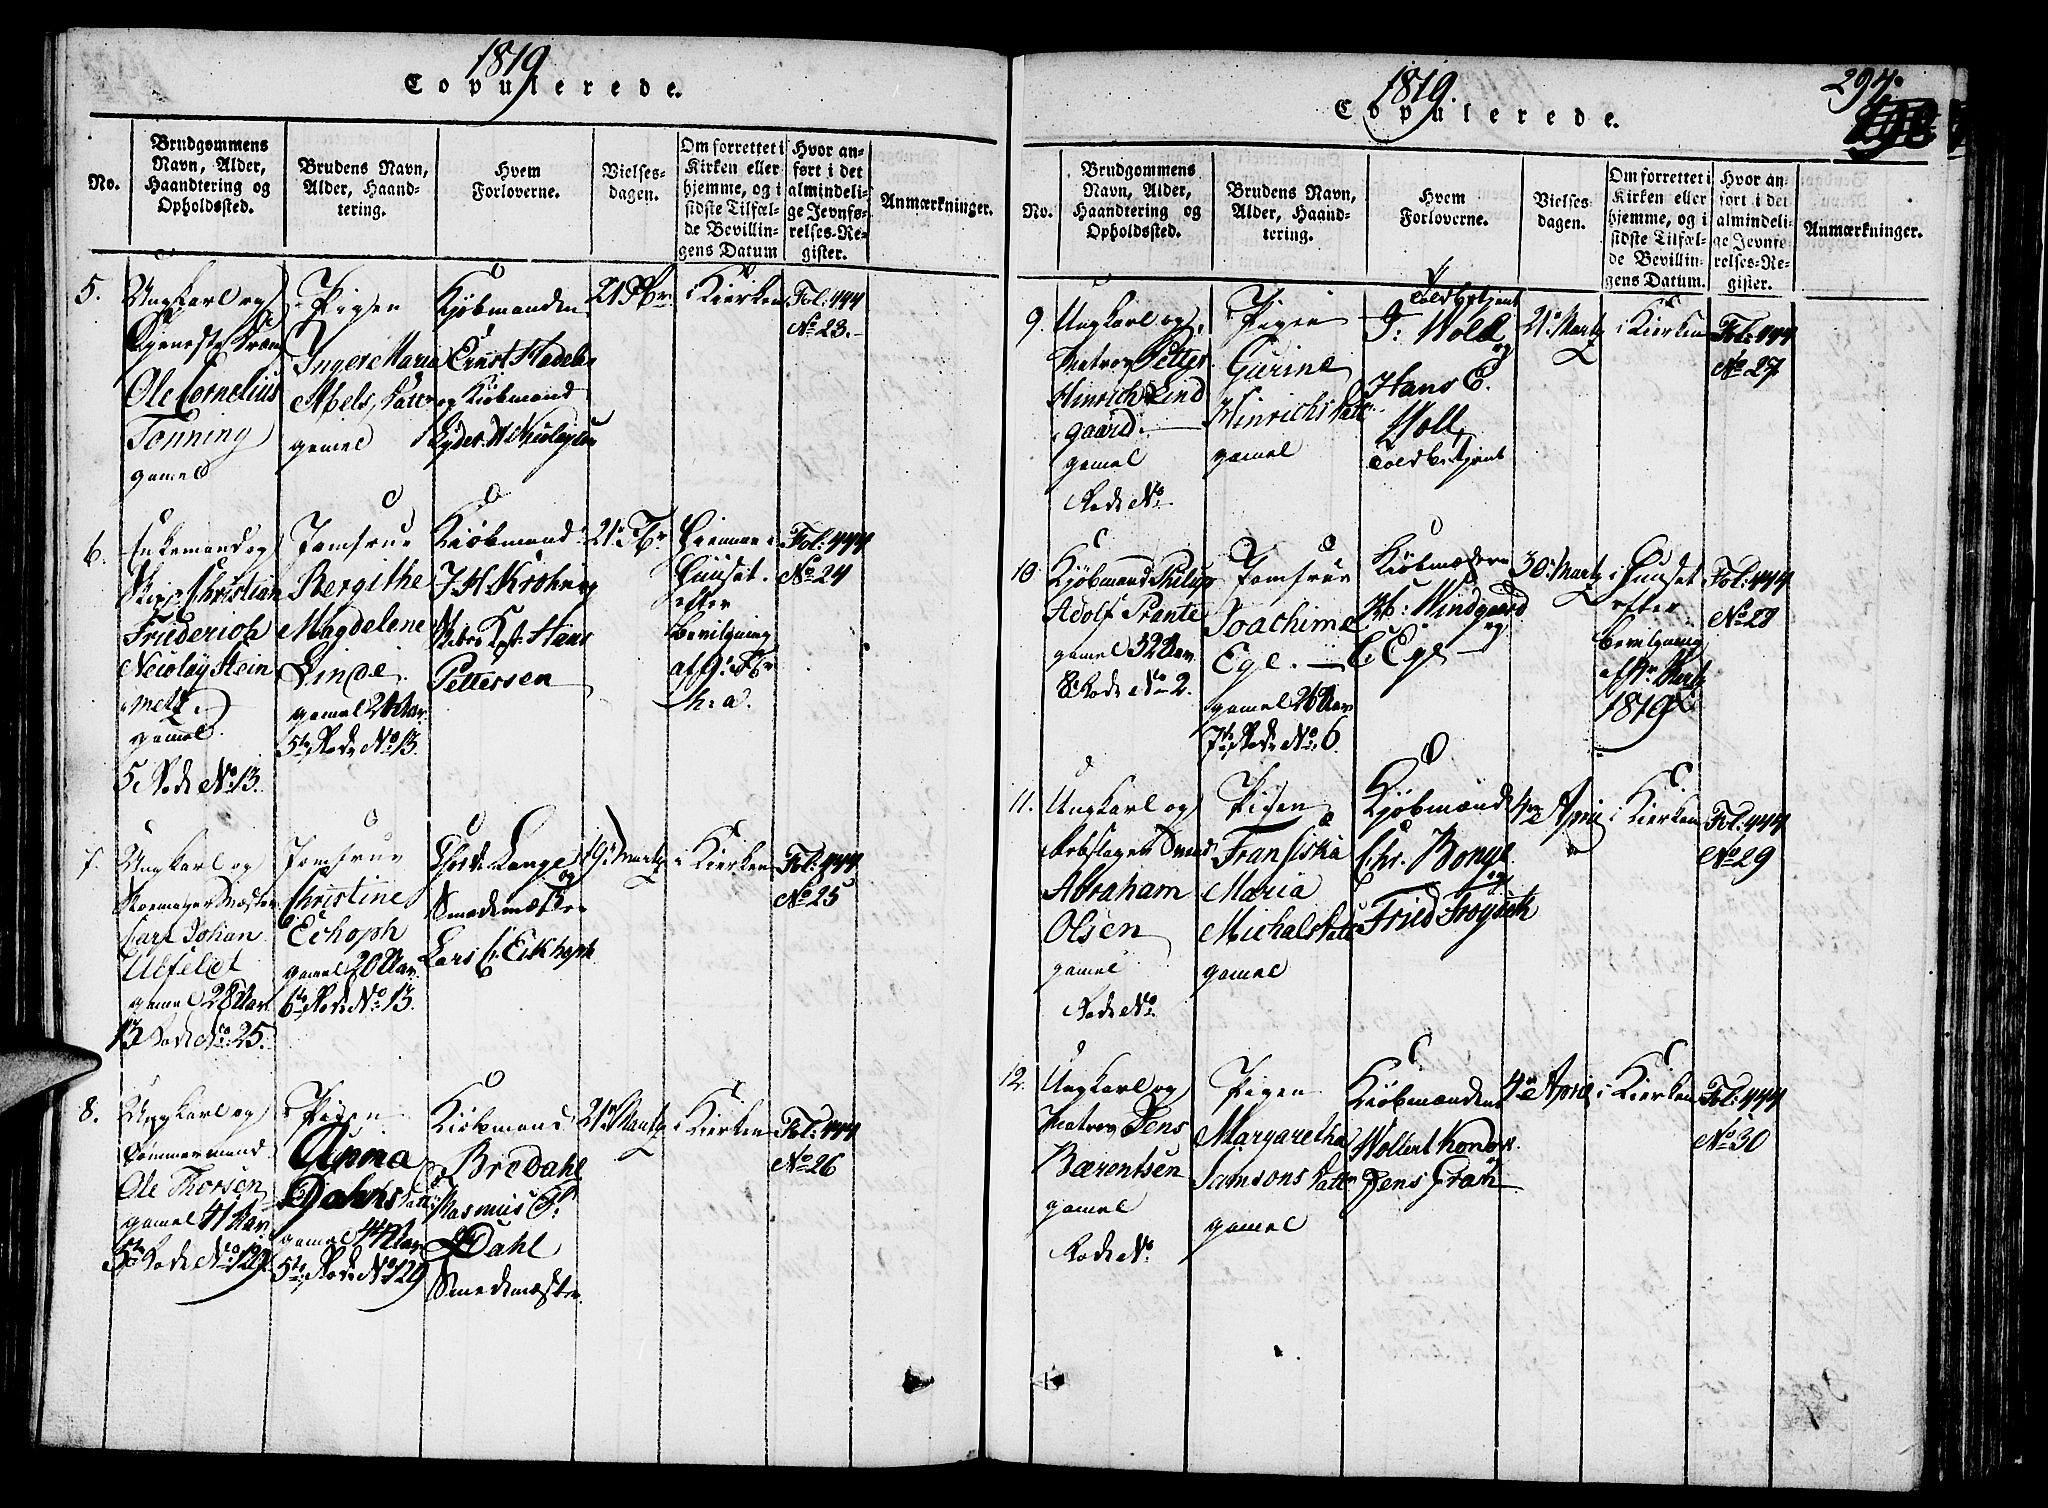 1819
Copulerede.
No.
Brudgommens
Navn, Alder,
Haandtering og
Opholdssted.
Brudens Navn,
Alder, Haand-
tering.
Hvem
Forloverne.
Vielses-
dagen.
Om forrettet i
Kirken eller
hjemme, og i
sidste Tilfæl-
de Bevillin-
gens Datum
Hvor an-
ført i det
almindeli-
ge Jevnfø-
relses-Re-
gister.
Anmærkninger.
5.
Ungkarl og
Ole Cornelius
Tonning
gamel
Pigen
Ingere Maria
Abels Datter
gamel
Kjøbmanden
Ernst
og Kiøbmand
21 Fbr.
i Kierken
Fol: 444
No 23.
6.
Enkemand og
Skipp Christian
Friederich
Nicolay Stein
metz
gamel
5 Rode No 13.
Jomfrue
Bergithe
Magdelene
Linde
gamel 24 Aar
5te Rode No 13.
Kiøbmend
J H Krohn og
Hans
Pettersen
21 Fbr
Hiemme i
Huuset
efter
bevilgning
af 9 Fbr
h: a.
Fol: 444
No 24
7.
Ungkarl og
Carl Johan
Ulfeldt
gamel 28 Aar
13 Rode No 25.
Jomfrue
Christine
Echoph
gamel 20 Aar
6te Rode No 13.
Lange
og
Smedemester
Lars C. Eikhoph
19 Martz
i Kierken
Fol: 444
No 25
8.
Ungkarl og
Tømmermand
Ole Thorsen
gamel 41 Aar
5te Rode No 129.
Pigen
Anna
Dahls Datt:
gamel 44 Aar
5te Rode No 129
Kiøbmand
Bredahl
Rasmus T:
Dahl
Smedemester
21 Martz
i Kierken
Fol: 444
No 26
1819.
Copulerede.
294.
No.
Brudgommens
Navn, Alder,
Haandtering og
Opholdssted.
Brudens Navn,
Alder, Haand-
tering.
Hvem
Forloverne.
Vielses-
dagen.
Om forrettet i
Kirken eller
hjemme, og i
sidste Tilfæl-
de Bevillin-
gens Datum.
Hvor an-
ført i det
almindeli-
ge Jevnfø-
relses-Re-
gister.
Anmærkninger.
9.
Ungkarl og
Matros Petter
Hinrich Lind
gaard.
gamel
Rode No
Pigen
Gurine
Hinrichs Datt:
gamel
Toldbetjent
J: Wold
og
Hans E.
Woll
Toldbetjent
21 Martz
i Kierken
Fol: 444
No 27
10
Kjøbmand Philip
Adolf Prante
gamel 32 Aar
8 Rode No 2.
Jomfrue
Joachime
Ege.
gamel 26 Aar
7te Rode No 6.
Kiøbmændene
Windgaard
og
C Ege
30 Martz
i Huuset
efter
bevilgning
af Martz
1819
Fol: 444
No 28
11.
Ungkarl og
Abraham
Olsen
gamel
Rode No
Pigen
Fransiska
Maria
Michals Datt
gamel
Kjøbmænd
Chr. Bonge
og
4 April
i Kierken
Fol: 444
No 29
12.
Ungkarl og
Matros Jens
Bærentsen
gamel
Rode No
Pigen
Margaretha
Samsons Datter
gamel
Kiøbmændene
Wollert Konow
Jens Gran
4 April
i Kierken
Fol: 444
No 30